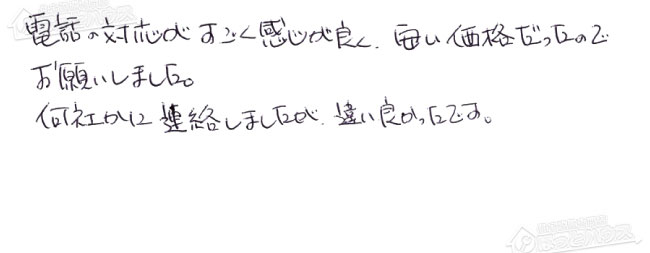 電話の対応がすごく感じが良く、安い価格だったので
お願いしました。
何社かに連絡しましたが、違い良かったです。